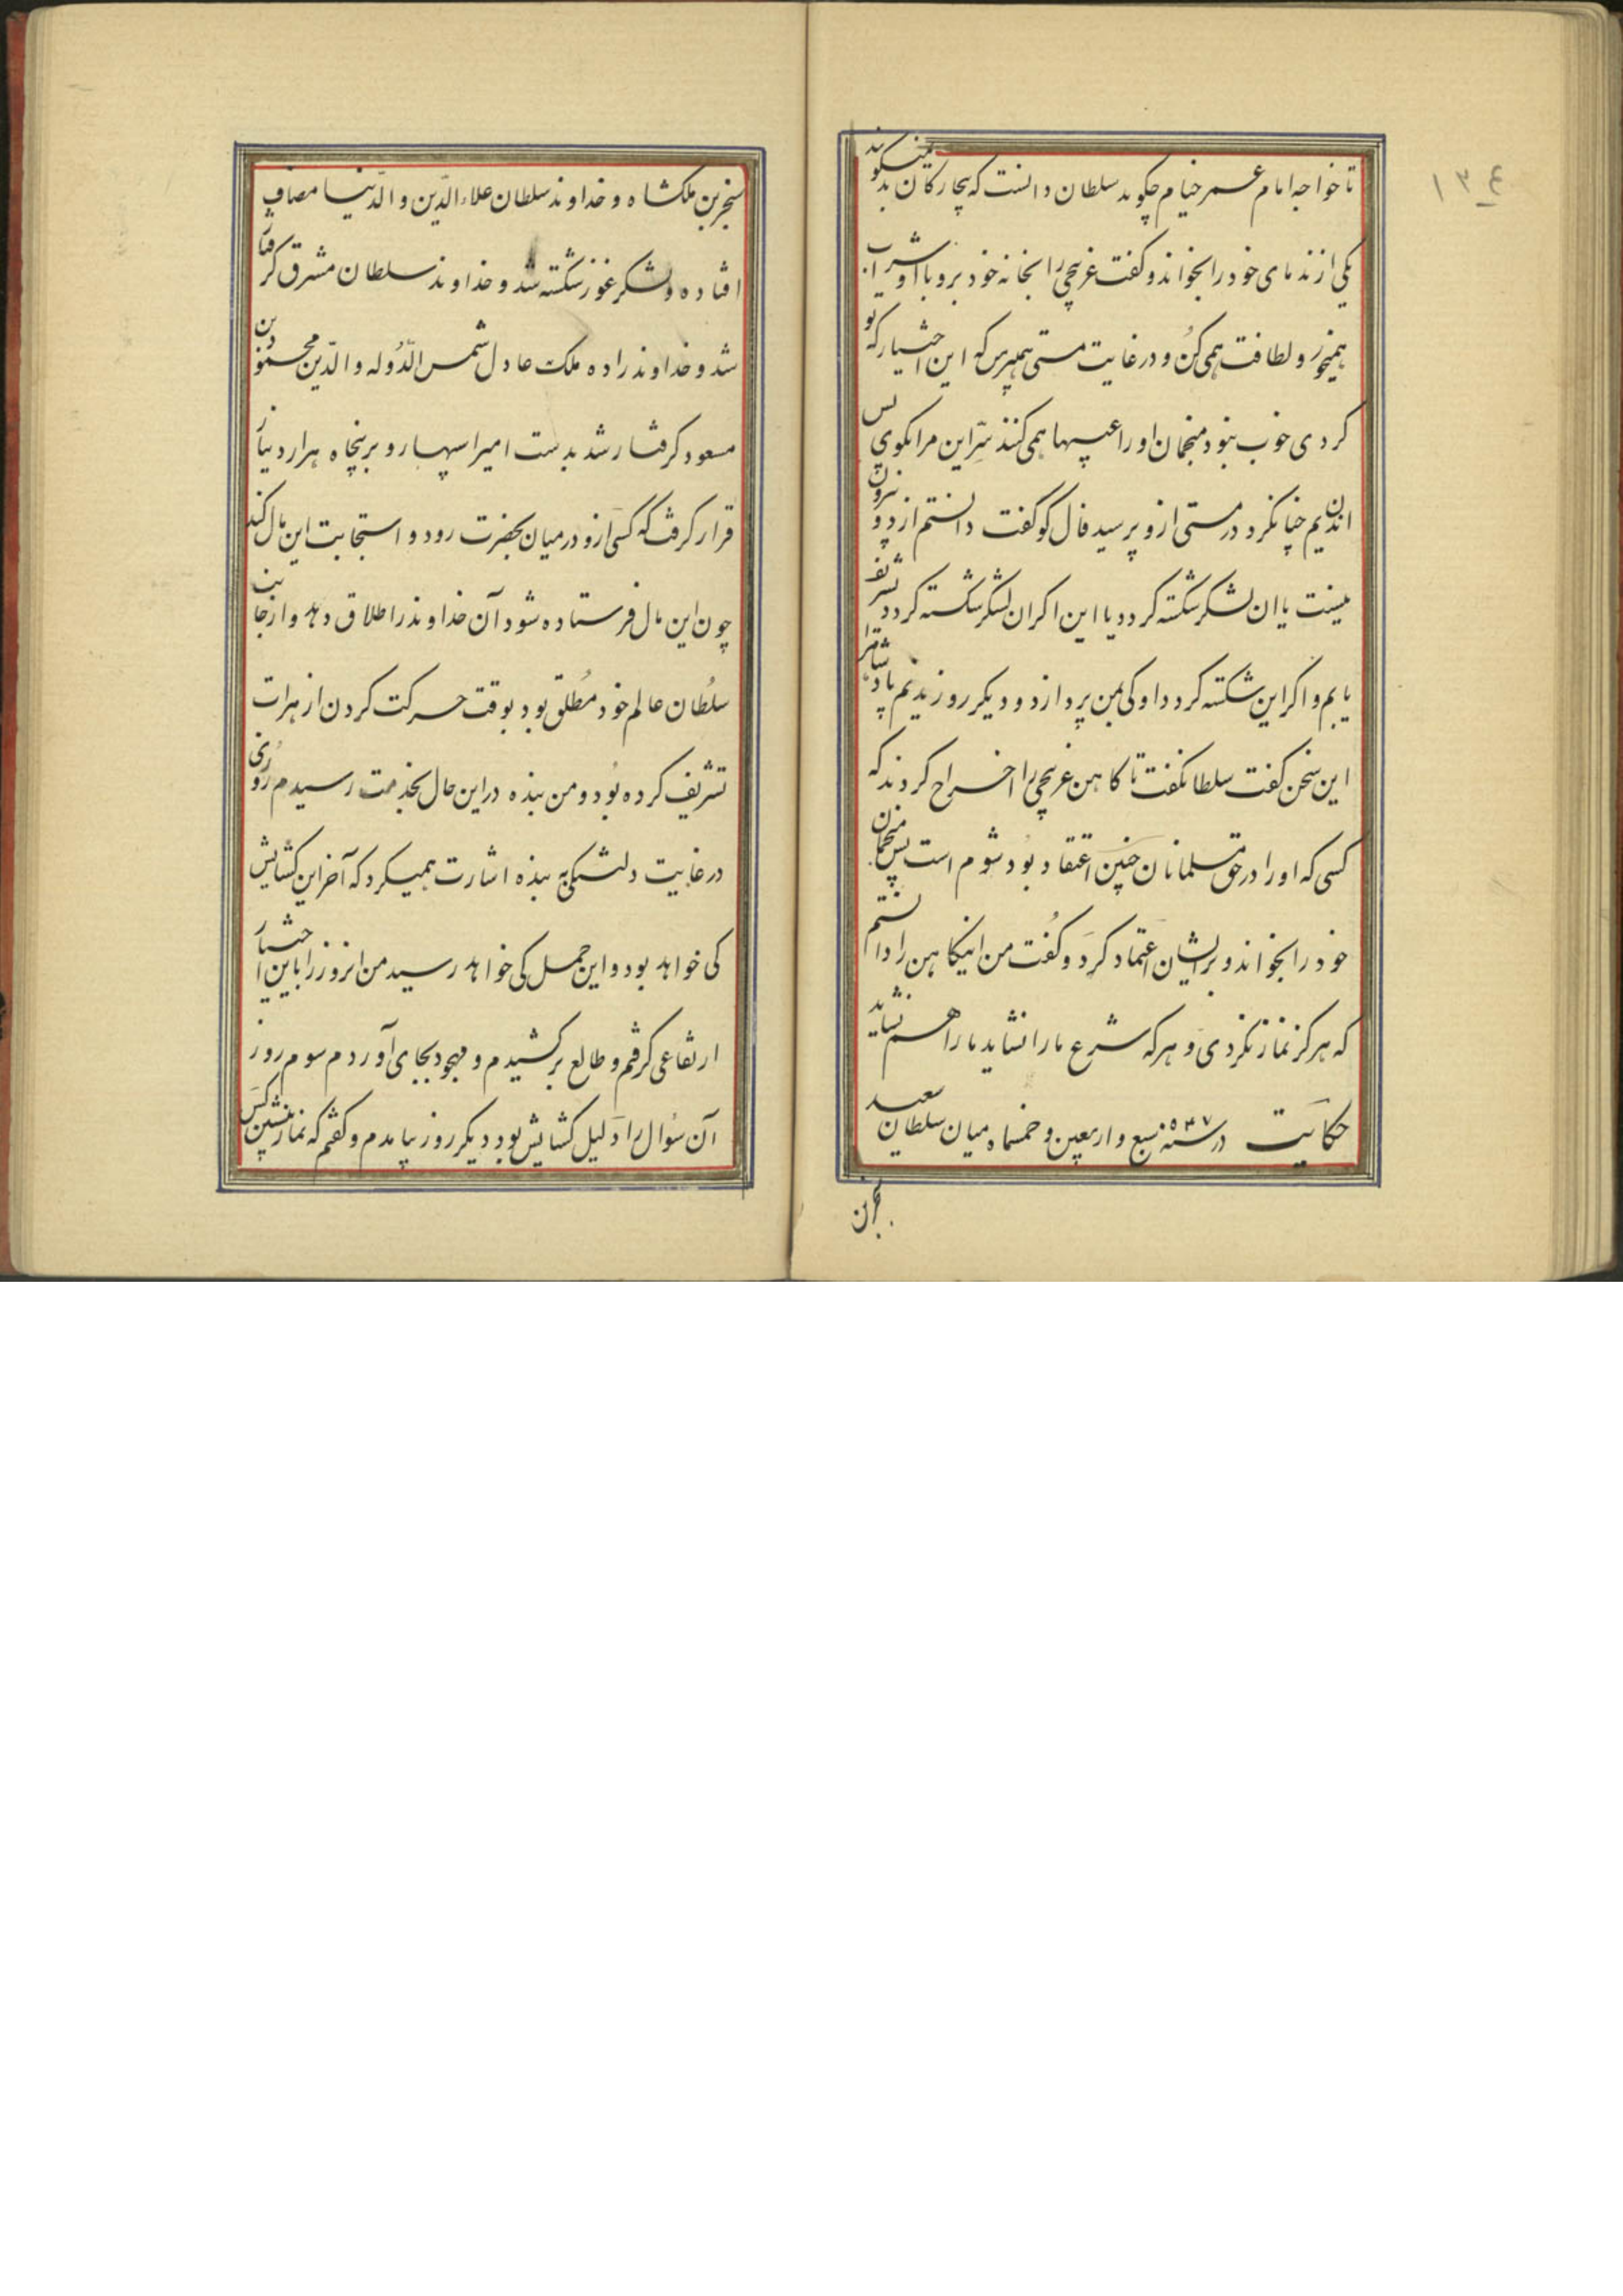 ۱۳۴
تا خواجه امام عمر خیام چکوید سلطان دانست که بیچارکان بد میکویند
یکی از ندمای خود را بخواند و کفت غزنیچی را بخانه خود بر و با او شراب
همیخور و لطافت همی کن و در غایت مستی همیپرس که این اختیار که تو
کردی خوب نبود منجمان او را عیبها همی کنند سّر این مرا بکوی پس
اندیم چنان کرد در مستی ازو پرسید فال کو کفت دانستم از دو برون
نیست یا ان لشکر شکسته کردد یا این اکر ان لشکر شکسته کردد تشریف
یابم و اکر این شکسته کردد او کی بمن پردازد و دیکر روز ندیم پادشاه را
این سخن کفت سلطان بکفت تا کاهن غزنیچی را اخراج کردند که
کسی که او را در حق مسلمانان چنین اعتقاد بود شوم است پس منجمان
خود را بخواند و بر ایشان اعتماد کرد و کفت من اینکاهن را دانستم
که هرکز نماز نکردی و هر که شرع ما را نشاید ما را هم نشاید
حکایت در سنه ۵۳۷ سبع و اربعین و خمسماه میان سلطان سعید
سنجر بن ملکشاه و خداوند سلطان علاء الدّین و الدّنیا مصاف
افتاده و لشکر غوز شکسته شد و خداوند سلطان مشرق کرفتار
شد و خداوند زاده ملک عادل شمس الدّوله و الدّین محمود بن
مسعود کرفتار شد بدست امیر اسپهسار و بر پنچاه هزار دینار
قرار کرفت که کسی ازو در میان بحضرت رود و استجابت این مال کند
چون این مال فرستاده شود آن خداوند را اطلاق دهد و از جانب
سلطان عالم خود مطلق بود بوقت حرکت کردن از هرات
تشریف کرده بود و من بنده در این حال بخدمت رسیدم روزی
در غایت دلتنکی به بنده اشارت همیکرد که آخر این کشایش
کی خواهد بود و این حمل کی خواهد رسید من انروز را باین اختیار
ارتفاعی کرفتم و طالع بر کشیدم و مجهود بجای آوردم سوم روز
آن سؤال را دلیل کشایش بود دیکر روز بیامدم و کفتم که نماز پیشین کس